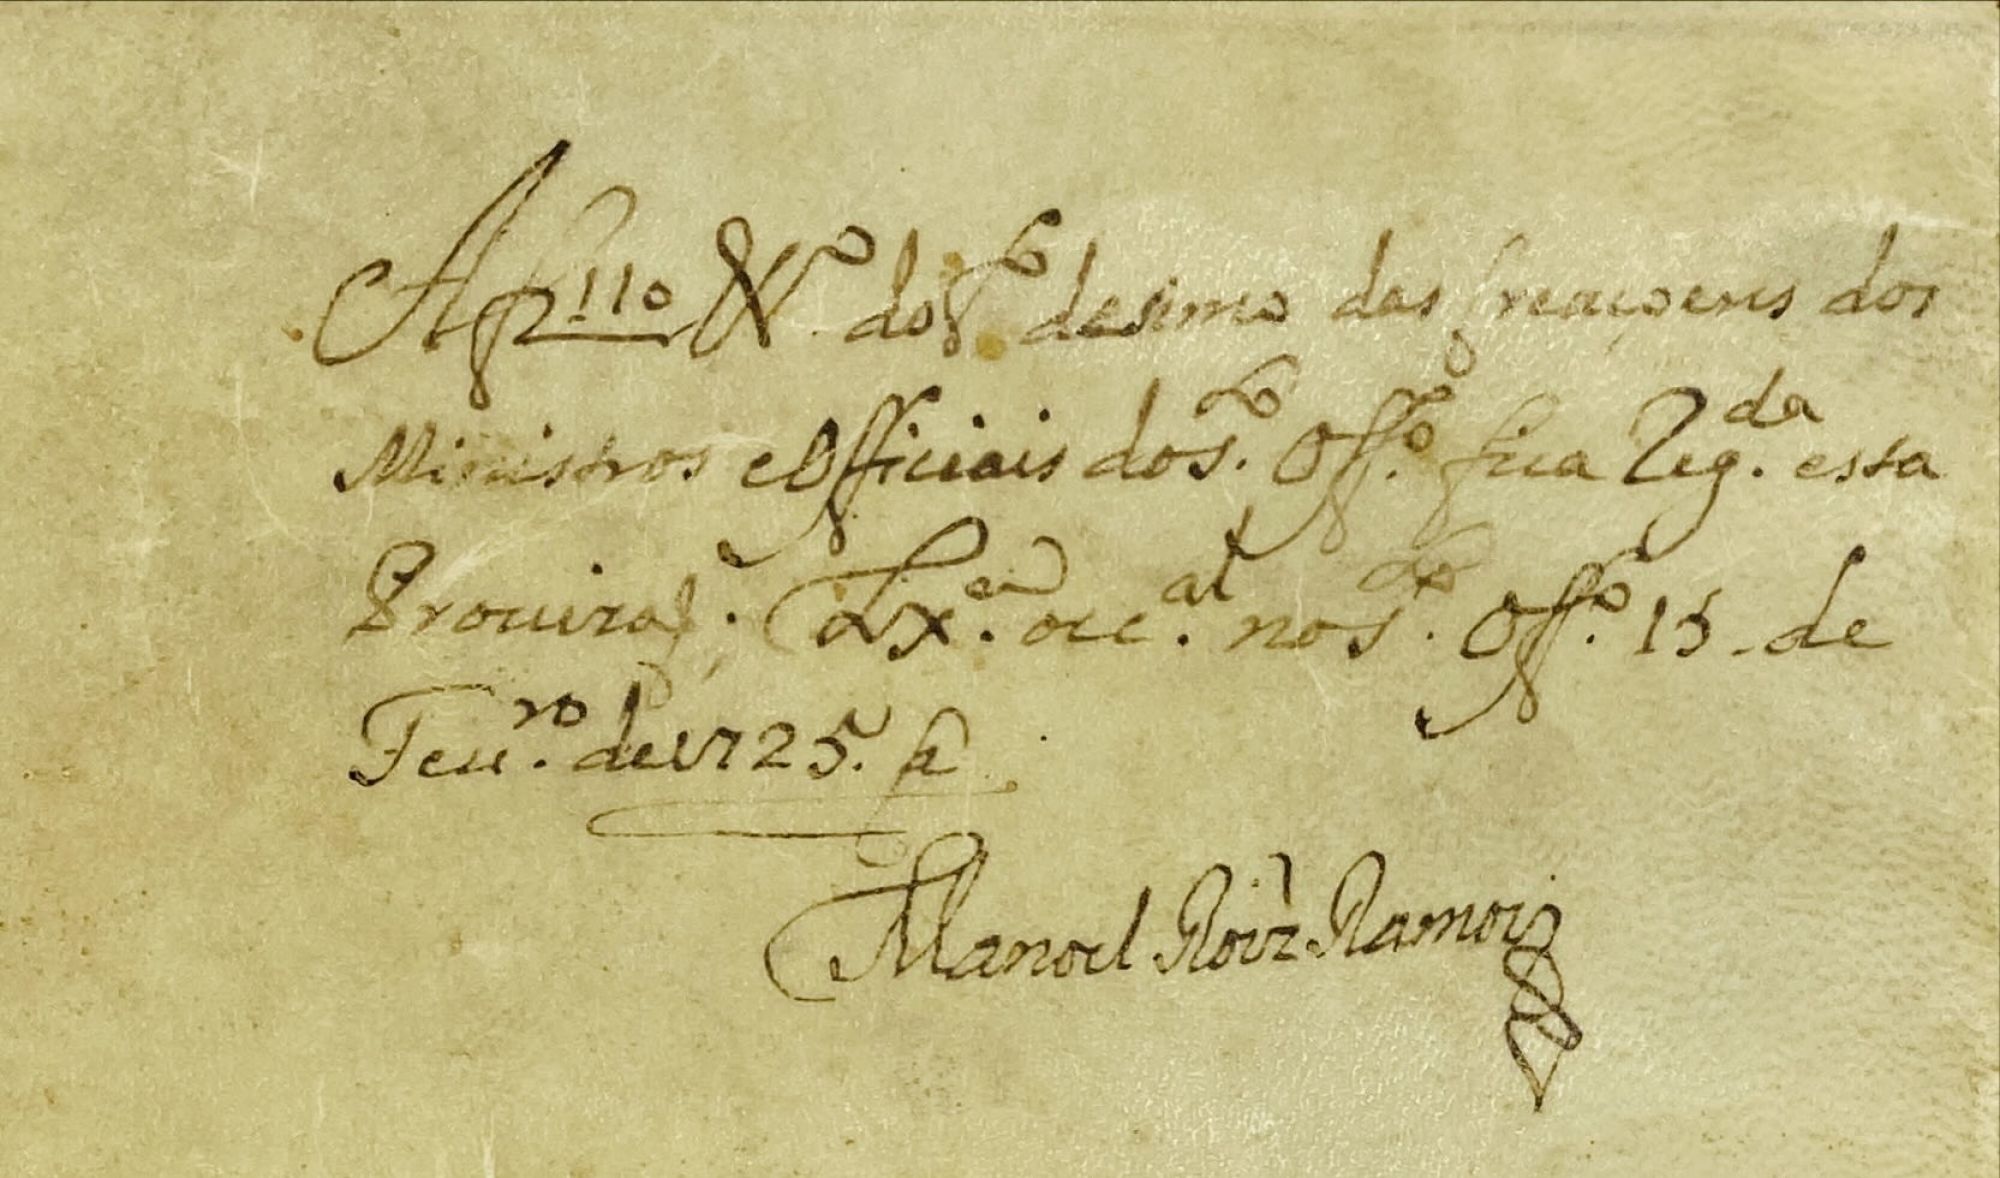 A f 110 V.º do L.º desimo das Creaçoens dos
Ministros e Officiais do S.to Off.º fica Reg.da esta
Provizaõ. Lx.ª occ.al no S.to Off.º 15 de
Feu.ro de 1725.
Manoel Roiz Ramos